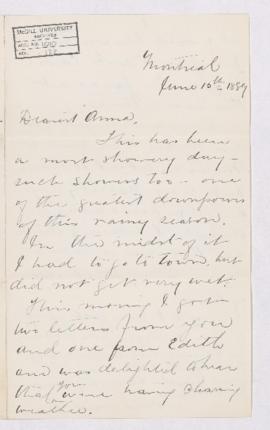 McGILL UNIVERSITY
ARCHIVES
ACC. NO. 1070
Montreal
June 10th 1889
Dearest Anna,
This has been
a most showery day –
such showers too – one
of the greatest downpours
of this rainy season.
In the midst of it
I had to go to town, but
did not get very wet.
This morning I got
two letters from you
and one from Edith
and was delighted to hear
that you were having
weather.